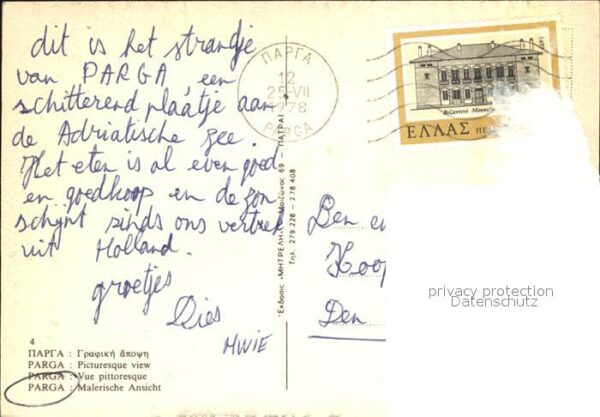 dit is het strandje
van PARGA, een
schitterend plaatje aan
de Adriatische zee.
Het eten is al even goed
en goedkoop en de zon
schijnt sinds ons vertrek
uit Holland.
groetjes
Dies
MWIE
4
ΠΑΡΓΑ : Γραφική ἄποψη
PARGA : Picturesque view
PARGA : Vue pittoresque
PARGA : Malerische Ansicht
Ἔκδοσις «ΜΗΤΡΕΛΗ» Μαιζῶνος 69 - ΠΑΤΡΑΙ
Τηλ. 279 226 - 278 408
ΠΑΡΓΑ
12
25-VII
778
PARGA
1977
Βυζαντινό
ΕΛΛΑΣ HE
Ben e
Koop
Den
privacy protection
Datenschutz